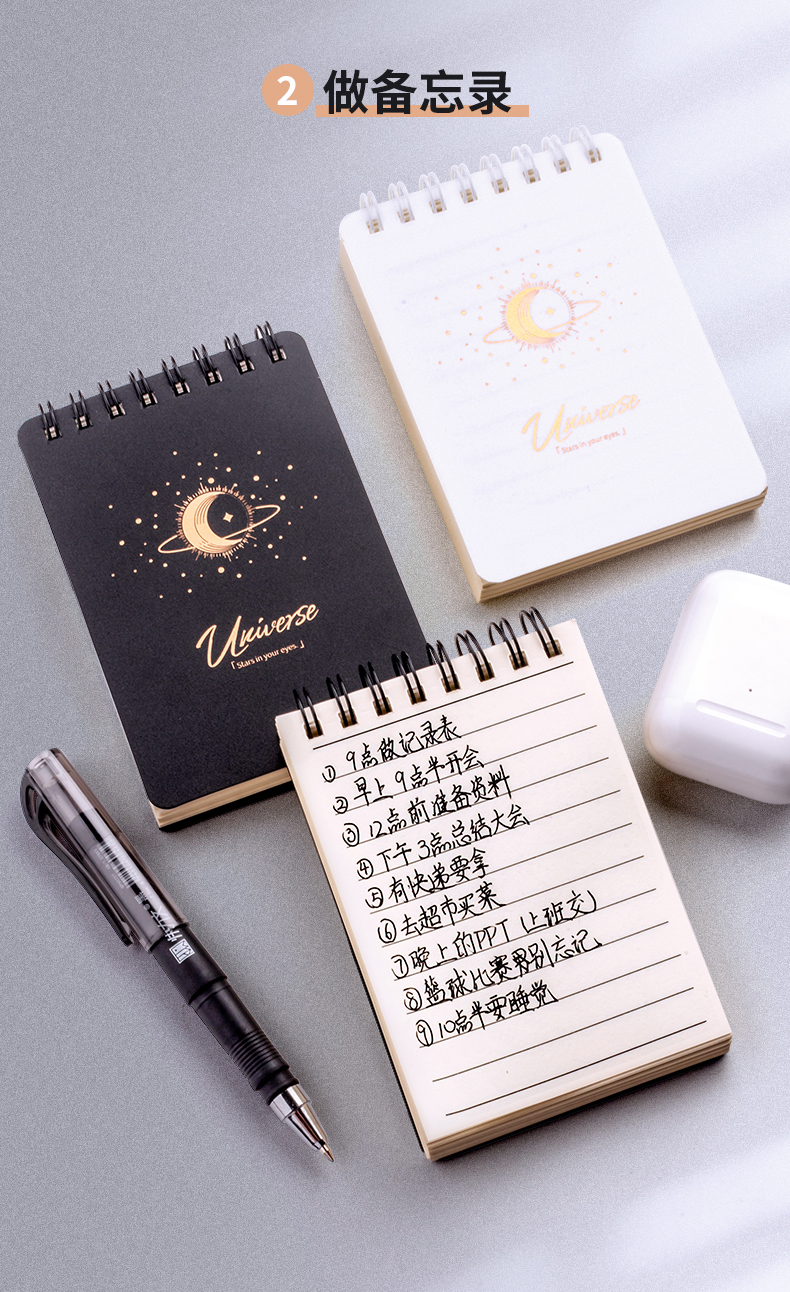 2 做备忘录
Universe
「Stars in your eyes.」
Universe
「Stars in your eyes.」
① 9点做记录表
② 早上9点半开会
③ 12点前准备资料
④ 下午3点总结大会
⑤ 有快递要拿
⑥ 去超市买菜
⑦ 晚上的PPT（上班交）
⑧ 篮球比赛男别忘记
⑨ 10点半要睡觉